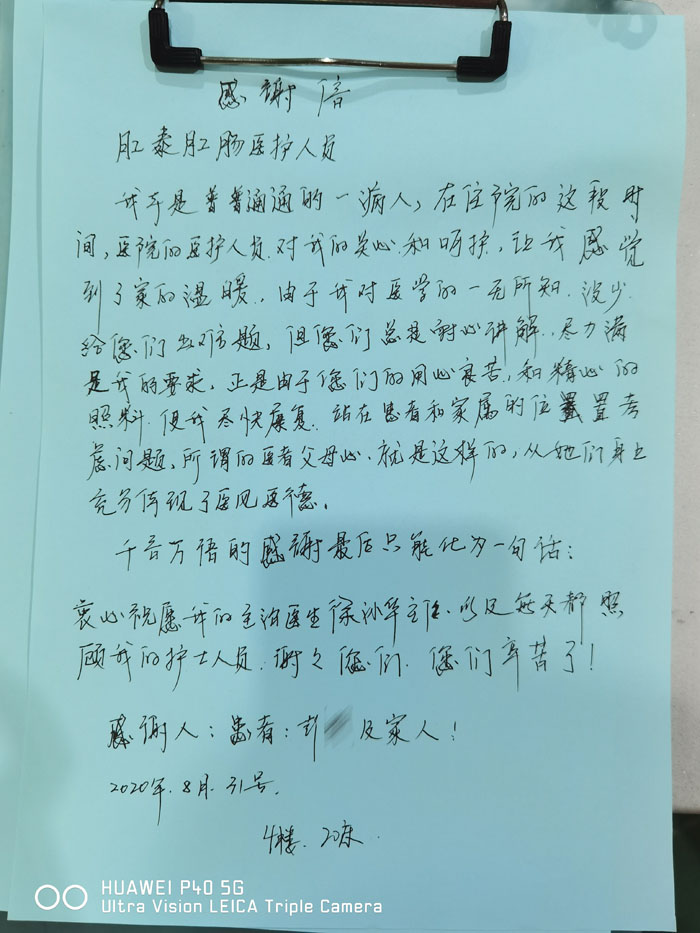 感谢信
肛泰肛肠医护人员
我于是普普通通的一病人，在住院的这段时
间，医院的医护人员对我的关心和呵护，让我感觉
到了家的温暖，由于我对医学的一无所知，没少
给您们出难题，但您们总是耐心讲解，尽力满
足我的要求，正是由于您们的用心良苦，和精心的
照料，使我尽快康复，站在患者和家属的位置置考
虑问题，所谓的医者父母心，就是这样的，从她们身上
充分体现了医风医德。
千言万语的感谢最后只能化为一句话：
衷心祝愿我的主治医生徐沙华主任以及每天都照
顾我的护士人员，谢谢您们，您们辛苦了！
感谢人：患者：彭 及家人！
2020年.8月.31号.
4楼.20床.
HUAWEI P40 5G
Ultra Vision LEICA Triple Camera